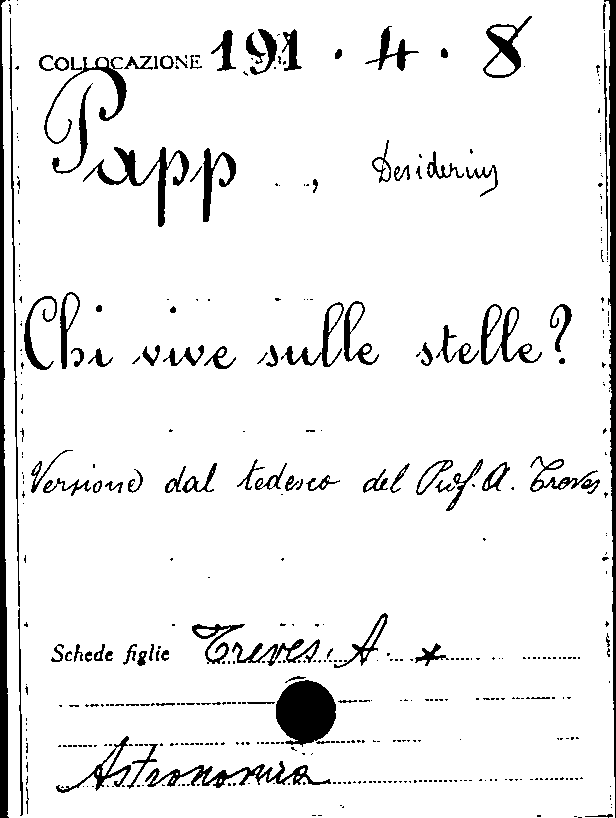 COLLOCAZIONE 191 . 4 . 8
Papp , Desiderius
Chi vive sulle stelle?
Versione dal tedesco del Prof. A. Treves.
Schede figlie Treves. A. *
Astronomia